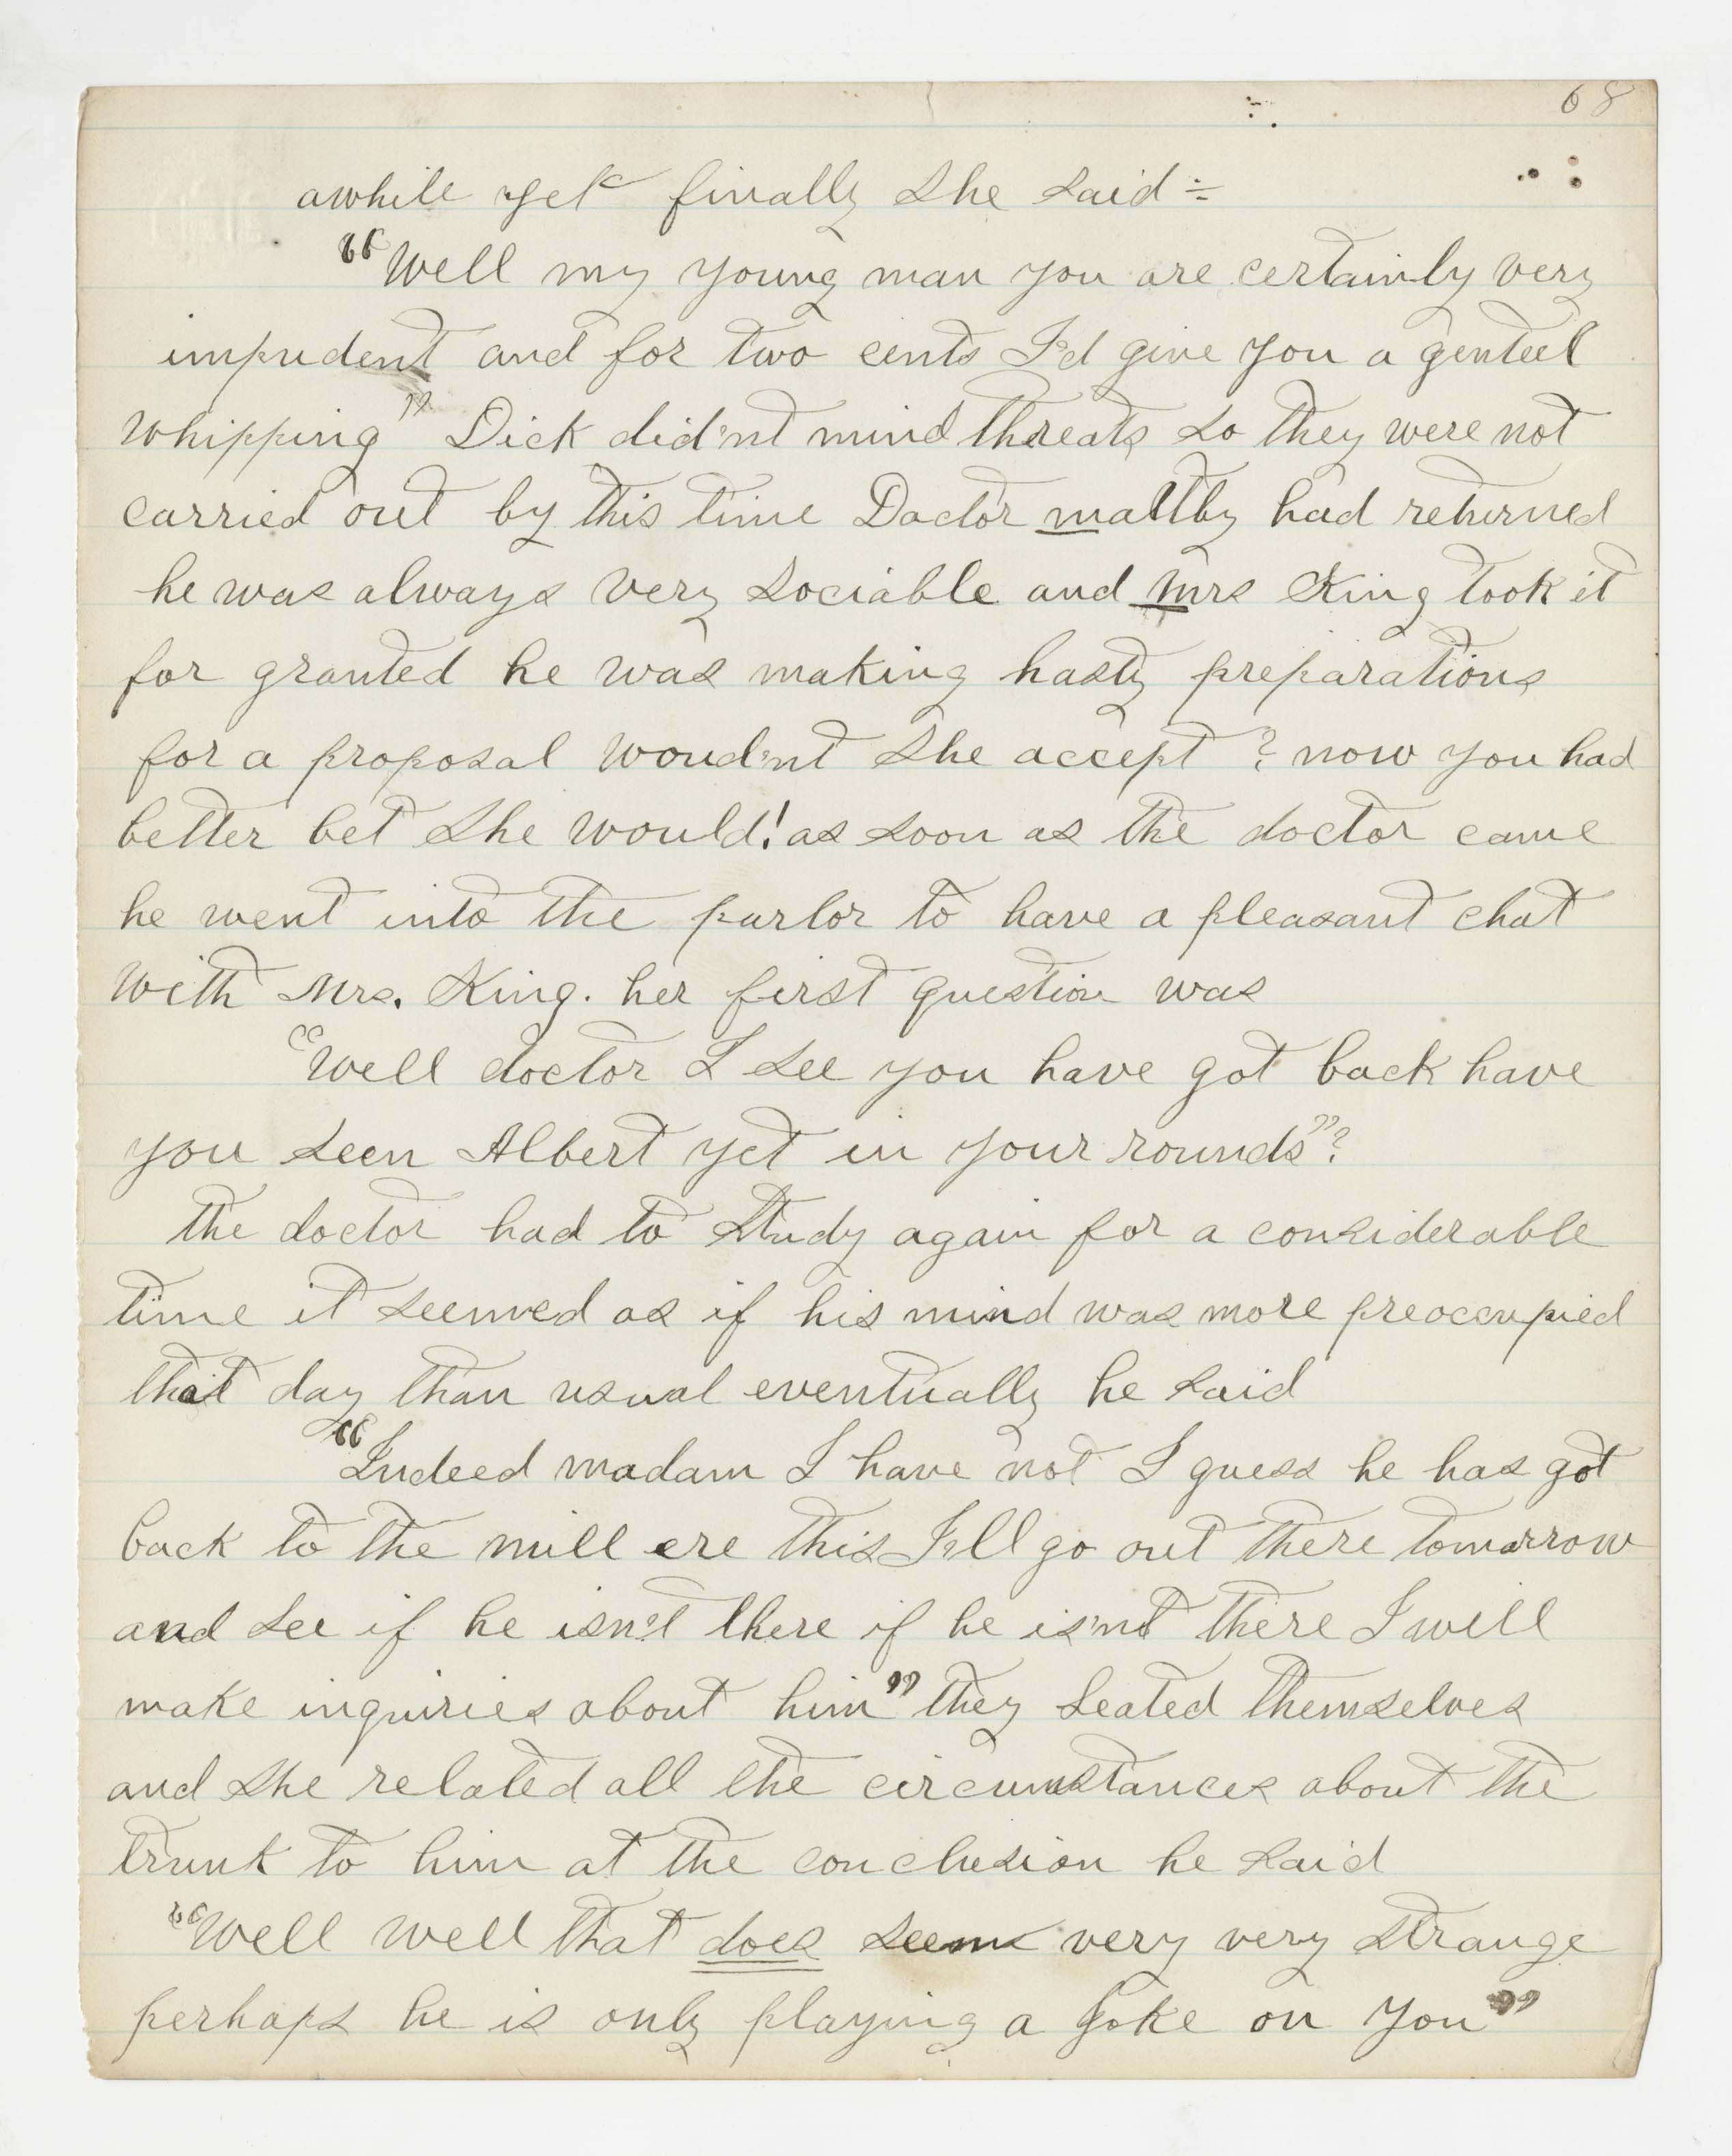 68
awhile yet finally she said :-
"Well my young man you are certainly very
impudent and for two cents I'd give you a genteel
whipping" Dick did'nt mind threats so they were not
carried out by this time Doctor maltby had returned
he was always very sociable and Mrs King took it
for granted he was making hasty preparations
for a proposal woud'nt she accept ? now you had
better bet she would! as soon as the doctor came
he went into the parlor to have a pleasant chat
with Mrs. King. her first question was
"Well doctor I see you have got back have
you seen Albert yet in your rounds"?
the doctor had to study again for a considerable
time it seemed as if his mind was more preoccupied
that day than usual eventually he said
"Indeed madam I have not I guess he has got
back to the mill ere this I'll go out there tomorrow
and see if he isn't there if he is'nt there I will
make inquiries about him" they seated themselves
and she related all the circumstances about the
trunk to him at the conclusion he said
"Well well that does seem very very strange
perhaps he is only playing a joke on you"